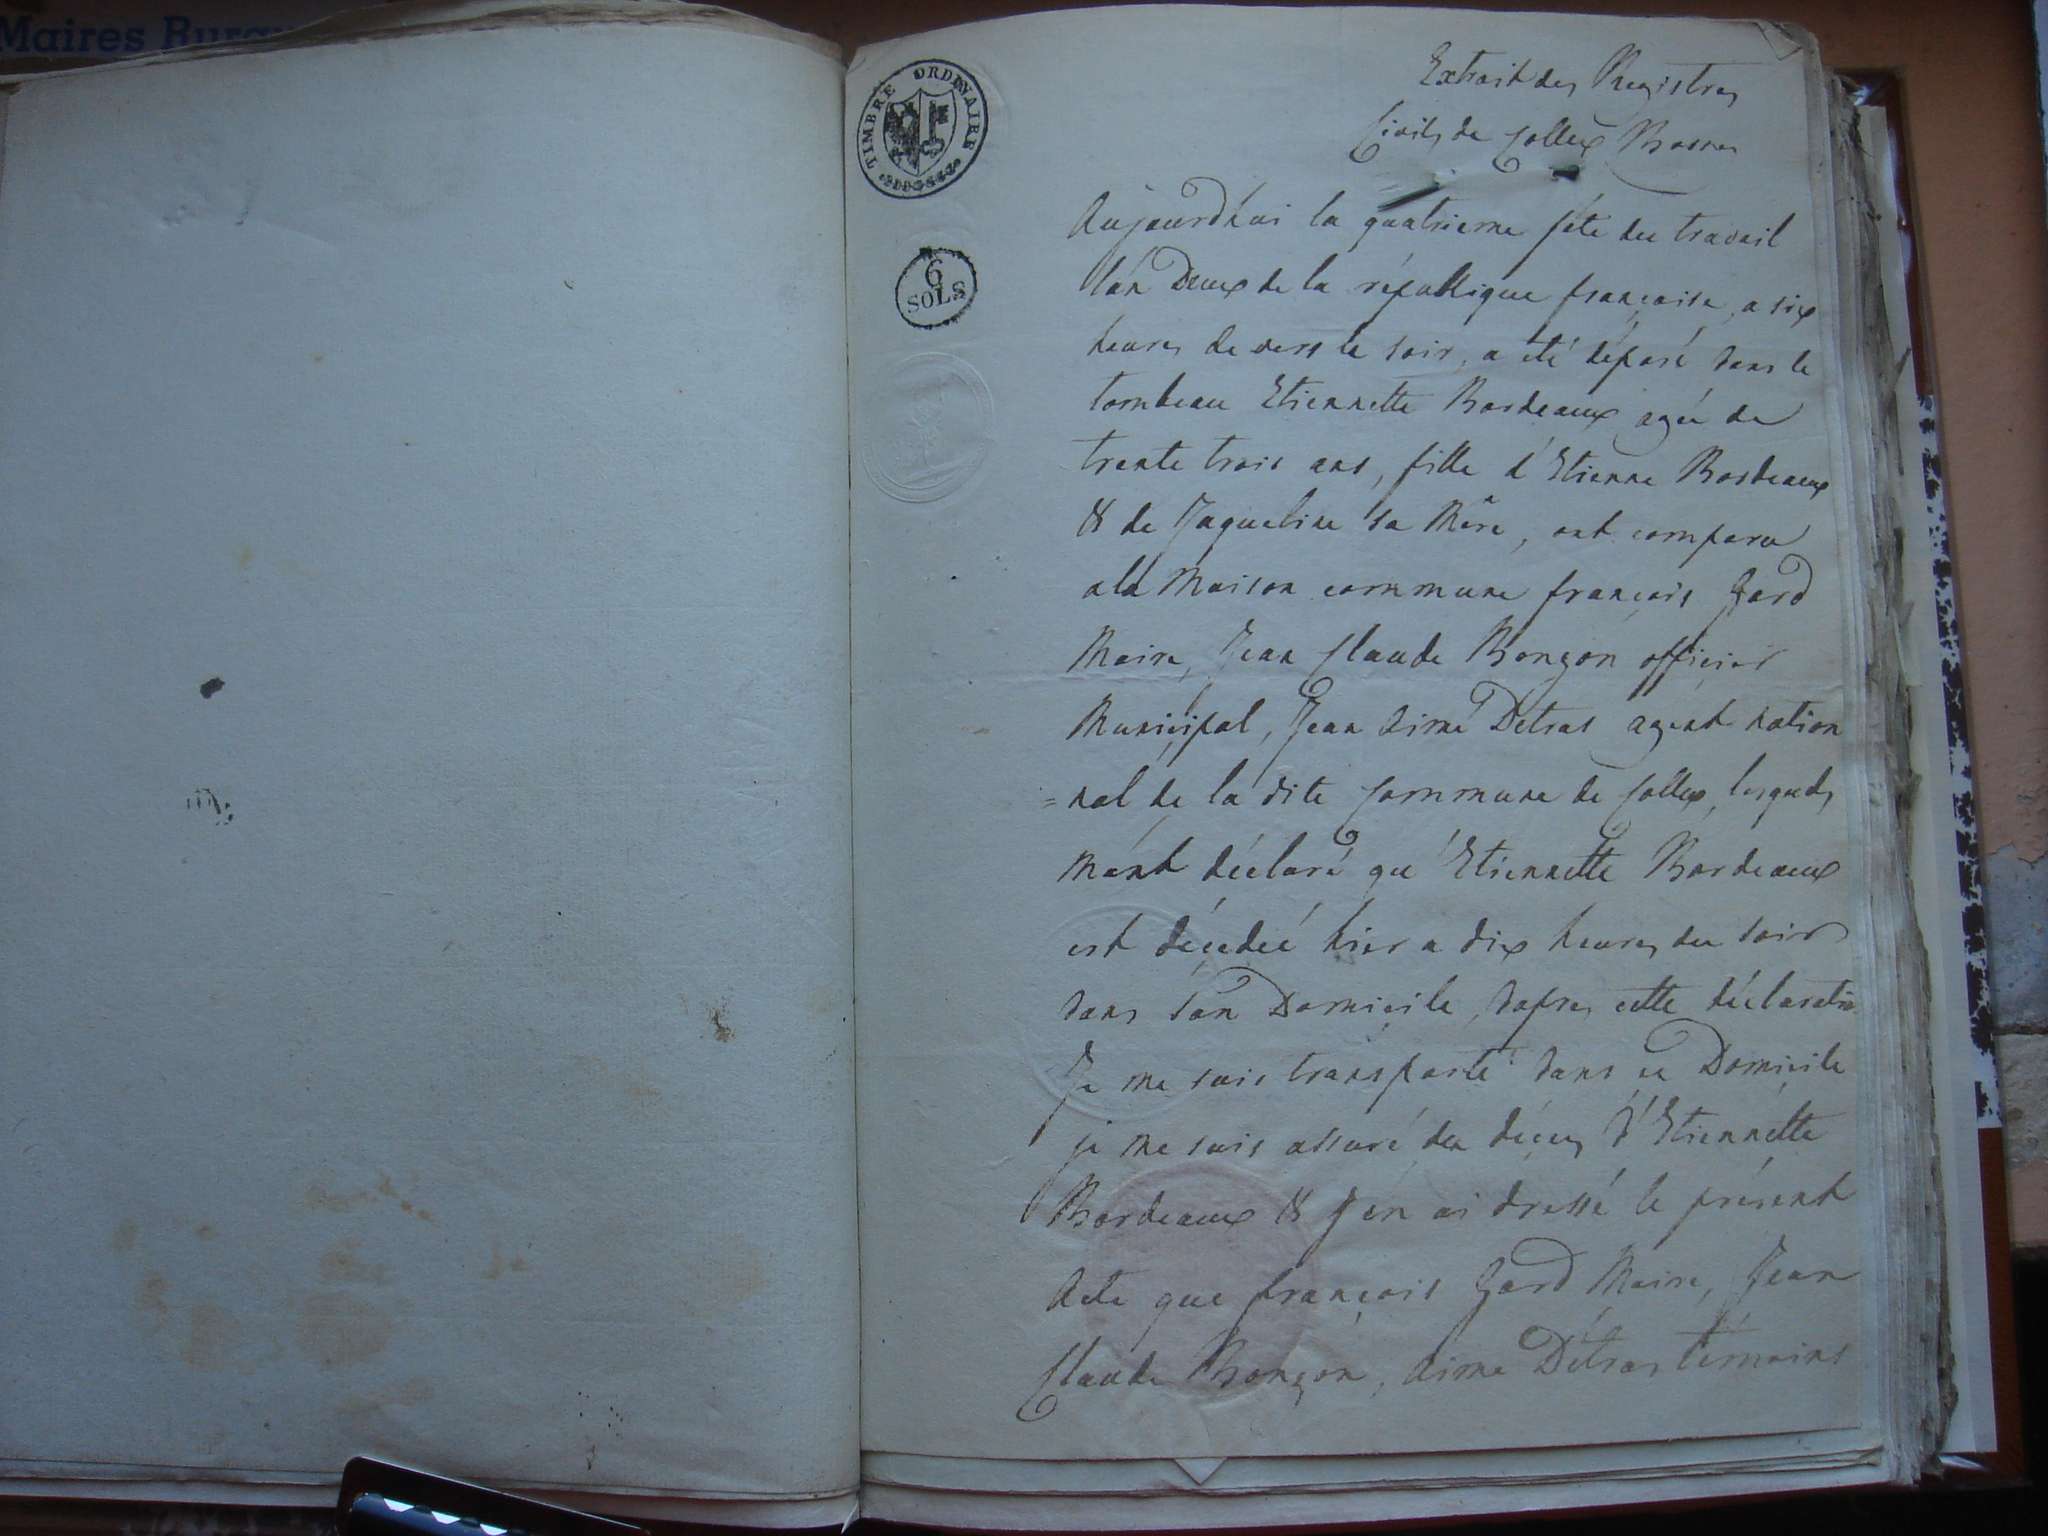 Maires Rura
TIMBRE ORDINAIRE
6
SOLS
Extrait des Registres
Civils de Collex Bossex
Aujourdhui la quatrieme fête du travail
l'an Deux de la république françoise, a six
heures de vers le soir, a été déposé dans le
tombeau Etiennette Bordeaux agée de
trente trois ans, fille d'Etienne Bordeaux
& de Jaqueline sa Mère, ont comparu
ala Maison commune françois Gard
Maire, Jean Claude Bonçon officier
Municipal, Jean Aimé Détras agent nation
=nal de la dite Commune de Collex, lesquels
m'ont déclaré qu'Etiennette Bordeaux
est décedeé hier a dix heures du soir
dans son Domicile, dapres cette déclaration
Je me suis transporté dans ce Domicile
je me suis assuré du décés d'Etiennette
Bordeaux & J'en ai dressé le présent
Acte que françois Gard Maire, Jean
Claude Bonçon, Aimé Détras témoins